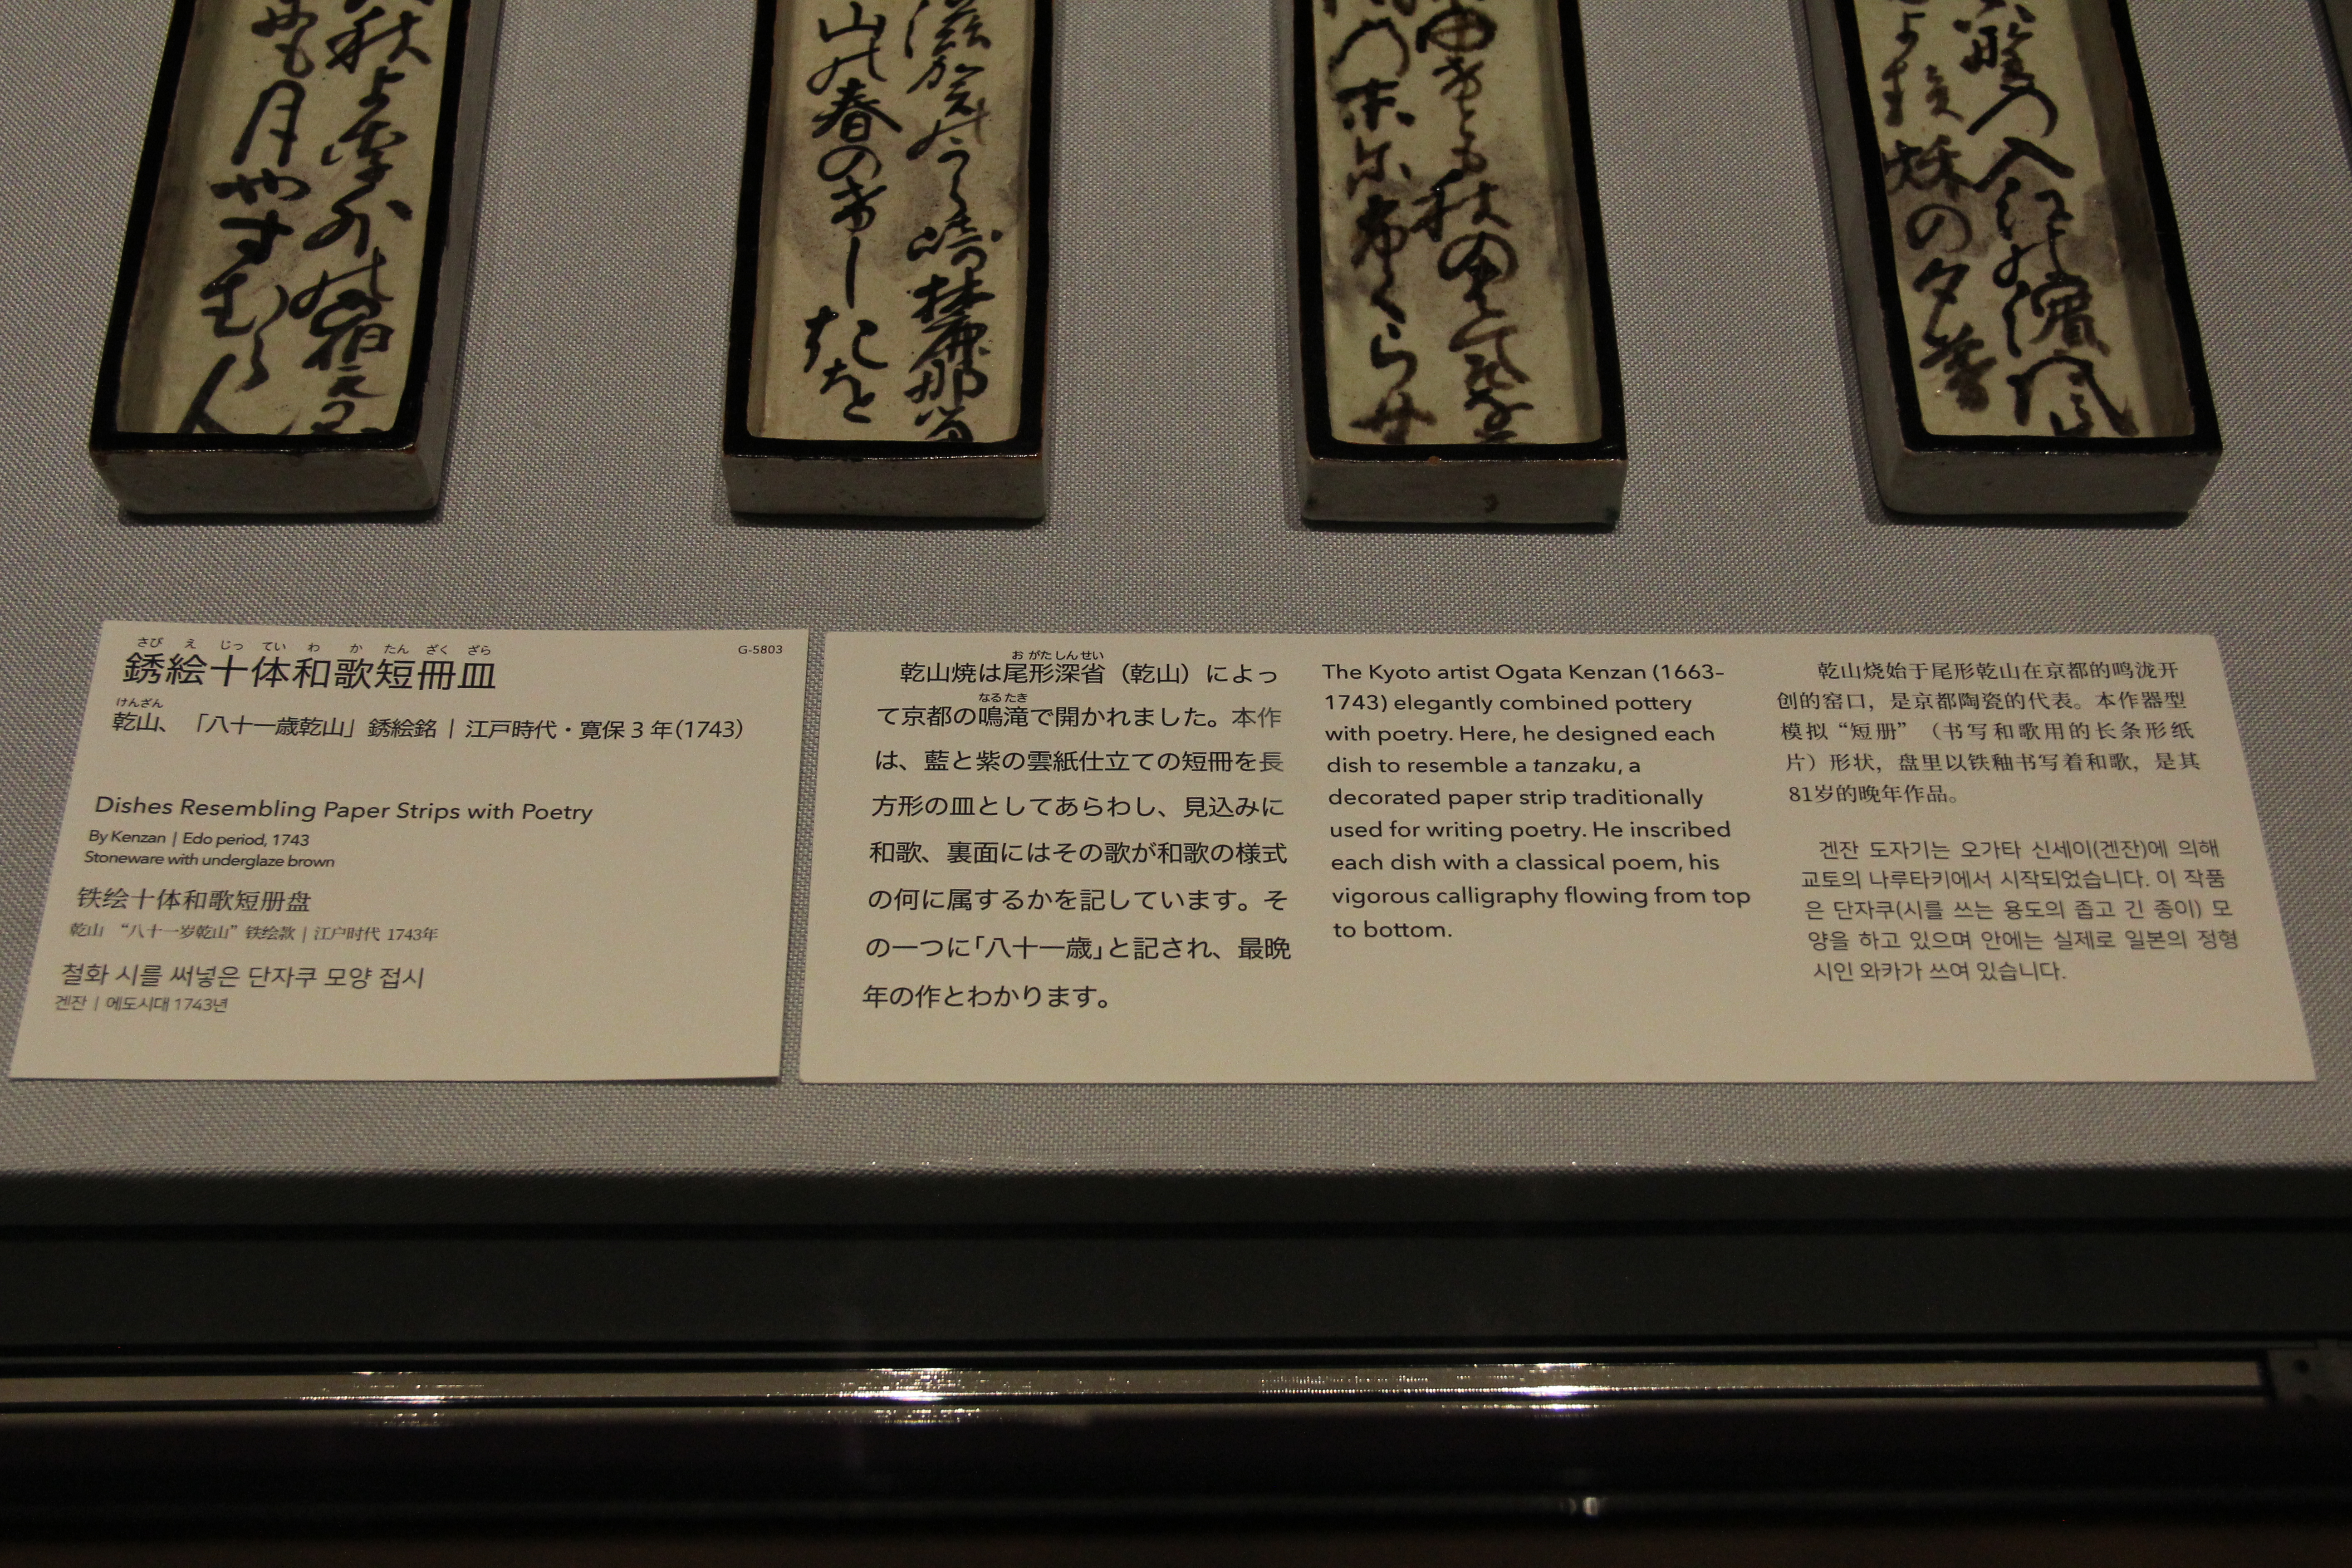 さび え じっ てい わ か たん ざく ざら
銹絵十体和歌短冊皿
G-5803
けんざん
乾山、「八十一歳乾山」銹絵銘 | 江戸時代・寛保3年(1743)
Dishes Resembling Paper Strips with Poetry
By Kenzan | Edo period, 1743
Stoneware with underglaze brown
铁绘十体和歌短册盘
乾山 “八十一岁乾山”铁绘款 | 江户时代 1743年
철화 시를 써넣은 단자쿠 모양 접시
겐잔 | 에도시대 1743년
お がた しん せい
乾山焼は尾形深省（乾山）によっ
なる たき
て京都の鳴滝で開かれました。本作
は、藍と紫の雲紙仕立ての短冊を長
方形の皿としてあらわし、見込みに
和歌、裏面にはその歌が和歌の様式
の何に属するかを記しています。そ
の一つに「八十一歳」と記され、最晩
年の作とわかります。
The Kyoto artist Ogata Kenzan (1663–
1743) elegantly combined pottery
with poetry. Here, he designed each
dish to resemble a tanzaku, a
decorated paper strip traditionally
used for writing poetry. He inscribed
each dish with a classical poem, his
vigorous calligraphy flowing from top
to bottom.
乾山烧始于尾形乾山在京都的鸣泷开
创的窑口，是京都陶瓷的代表。本作器型
模拟“短册”（书写和歌用的长条形纸
片）形状，盘里以铁釉书写着和歌，是其
81岁的晚年作品。
겐잔 도자기는 오가타 신세이(겐잔)에 의해
교토의 나루타키에서 시작되었습니다. 이 작품
은 단자쿠(시를 쓰는 용도의 좁고 긴 종이) 모
양을 하고 있으며 안에는 실제로 일본의 정형
시인 와카가 쓰여 있습니다.